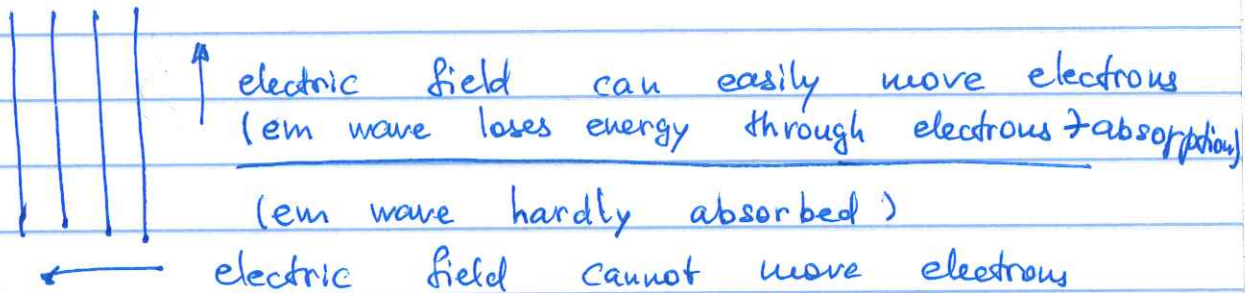 electric field can easily move electrons
(em wave loses energy through electrons → absorption)
(em wave hardly absorbed)
electric field cannot move electrons